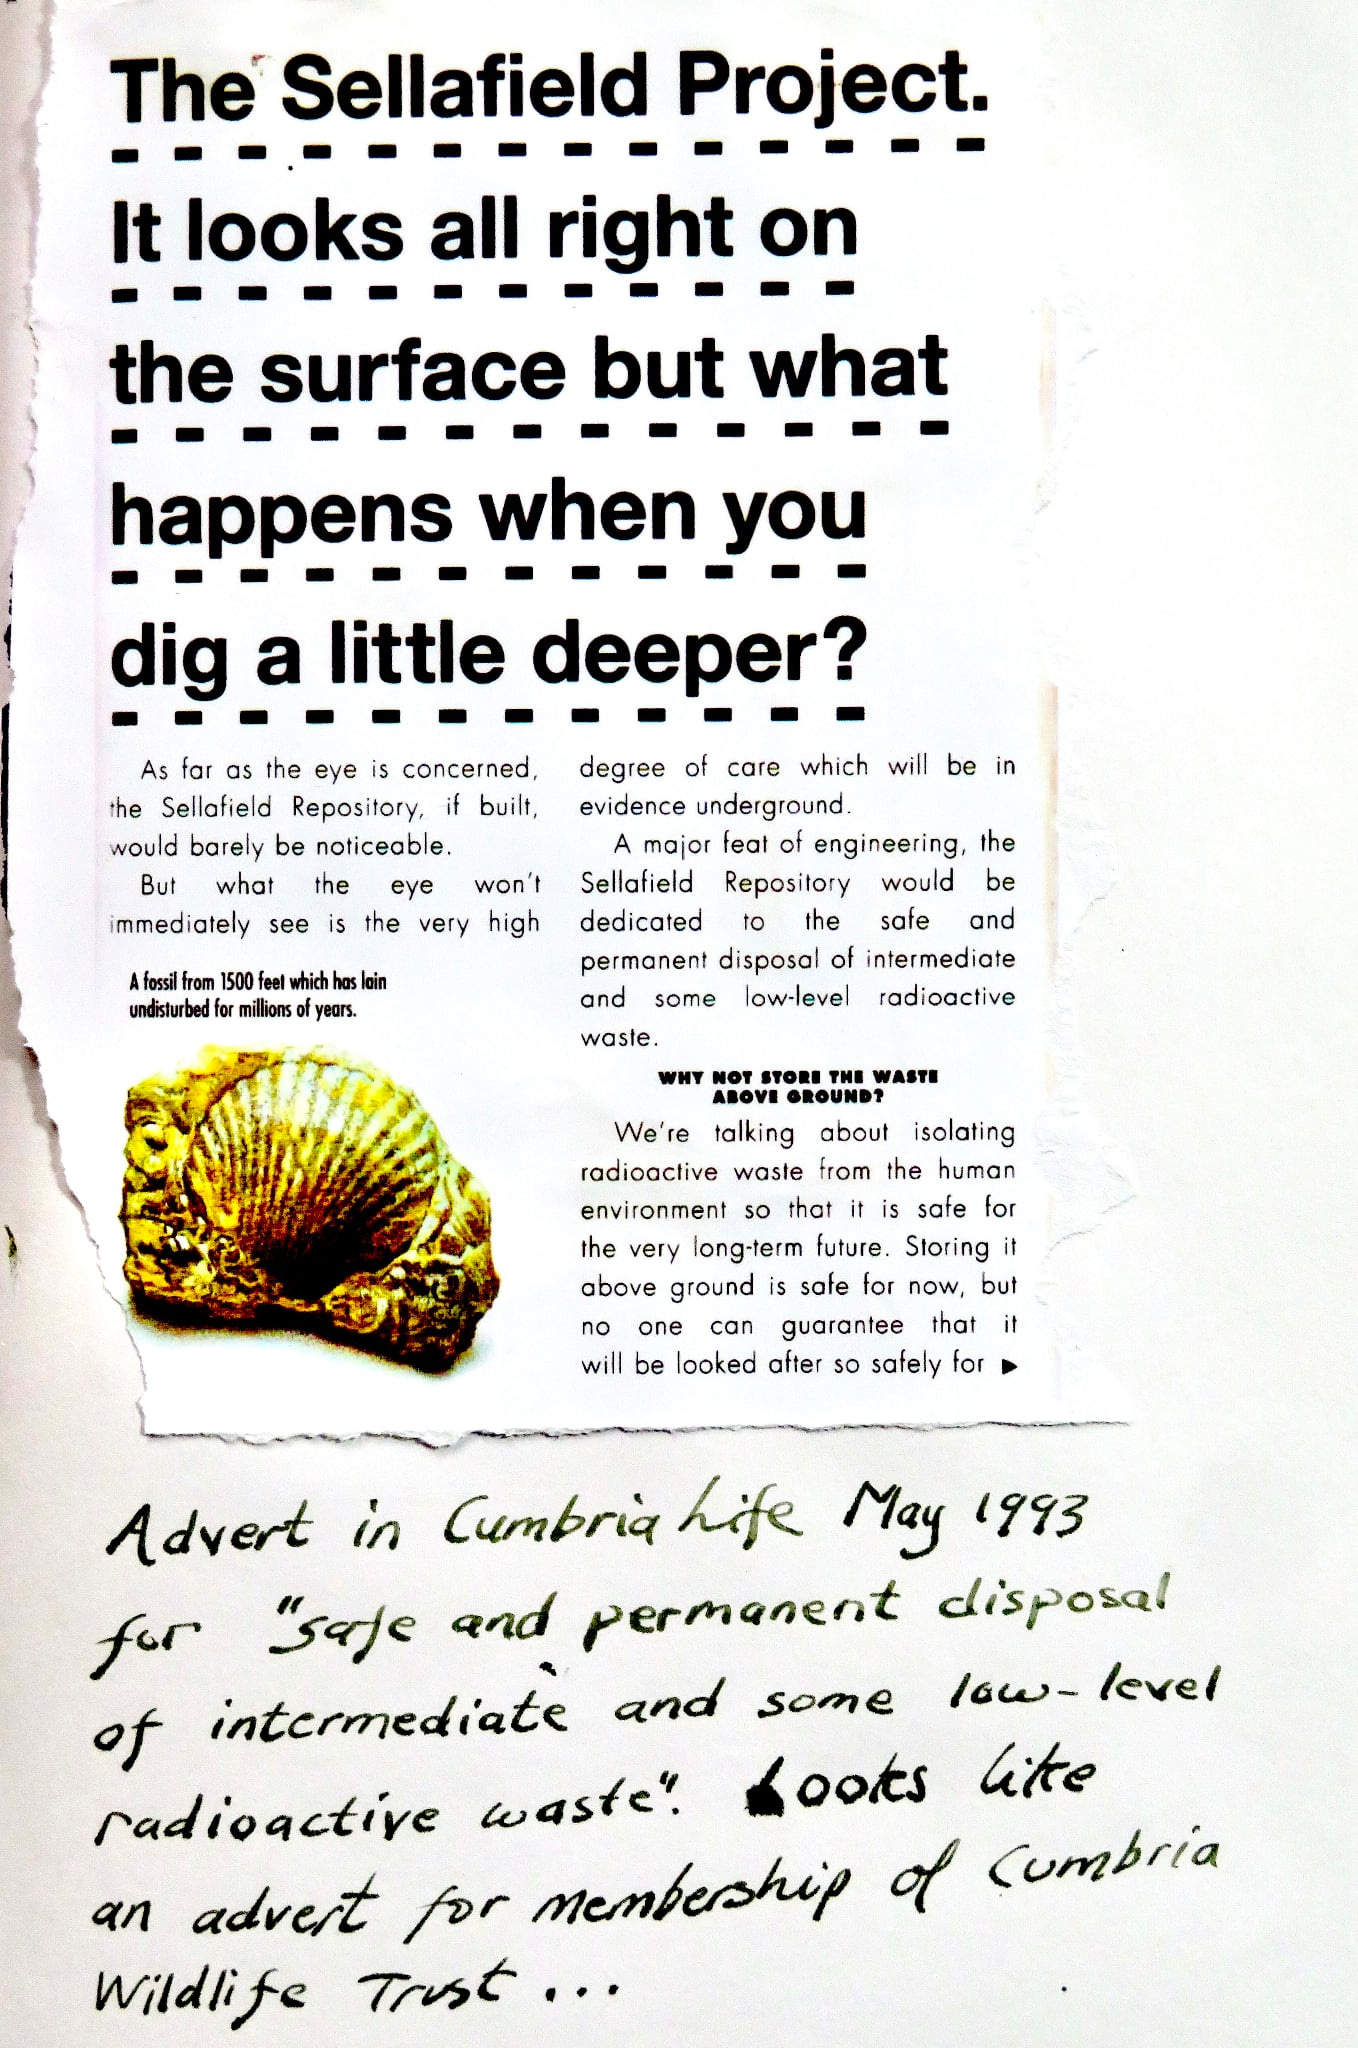 The Sellafield Project.
It looks all right on
the surface but what
happens when you
dig a little deeper?
As far as the eye is concerned,
the Sellafield Repository, if built,
would barely be noticeable.
But what the eye won't
immediately see is the very high
A fossil from 1500 feet which has lain
undisturbed for millions of years.
degree of care which will be in
evidence underground.
A major feat of engineering, the
Sellafield Repository would be
dedicated to the safe and
permanent disposal of intermediate
and some low-level radioactive
waste.
WHY NOT STORE THE WASTE
ABOVE GROUND?
We're talking about isolating
radioactive waste from the human
environment so that it is safe for
the very long-term future. Storing it
above ground is safe for now, but
no one can guarantee that it
will be looked after so safely for ▶
Advert in Cumbria Life May 1993
for "safe and permanent disposal
of intermediate and some low-level
radioactive waste". Looks like
an advert for membership of Cumbria
Wildlife Trust...